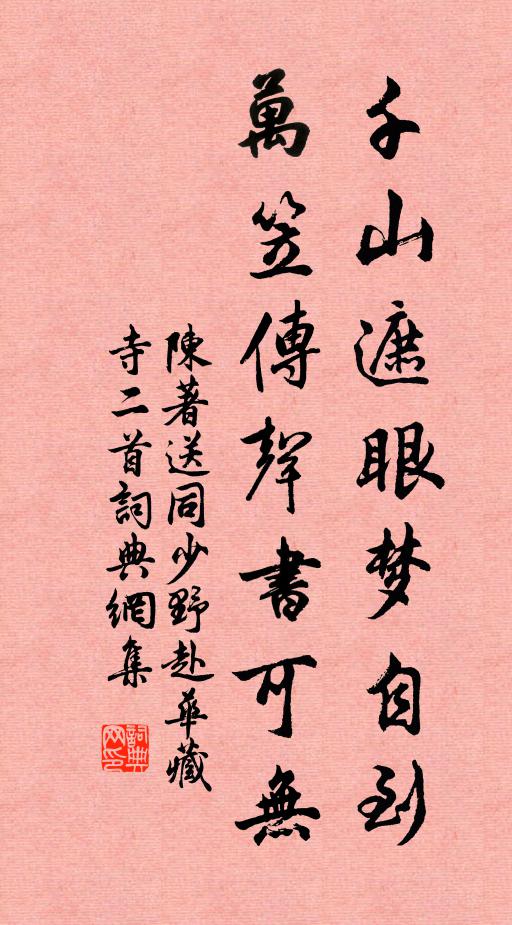 千山遮眼梦自到
萬笠傳聲書可無
陳著送同少野赴華藏
寺二首詞典網集
詞典
网印